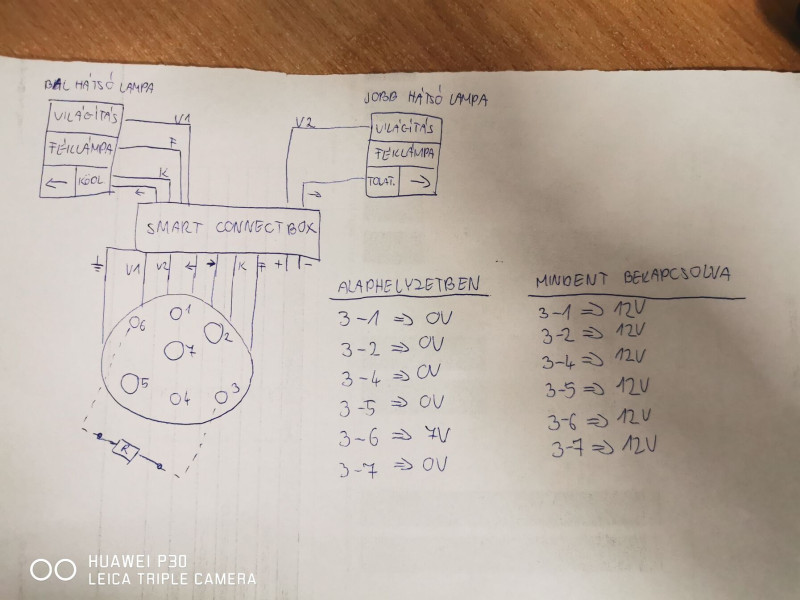 BAL HÁTSÓ LAMPA
VILÁGÍTÁS
FÉKLÁMPA
← KÖDL
V1
F
K
←
JOBB HÁTSÓ LAMPA
VILÁGÍTÁS
FÉKLÁMPA
TOLAT. →
V2
→
SMART CONNECTBOX
V1 V2 ← → K F + -
1
6
2
7
5
4
3
R
ALAPHELYZETBEN
3-1 => 0V
3-2 => 0V
3-4 => 0V
3-5 => 0V
3-6 => 7V
3-7 => 0V
MINDENT BEKAPCSOLVA
3-1 => 12V
3-2 => 12V
3-4 => 12V
3-5 => 12V
3-6 => 12V
3-7 => 12V
HUAWEI P30
LEICA TRIPLE CAMERA